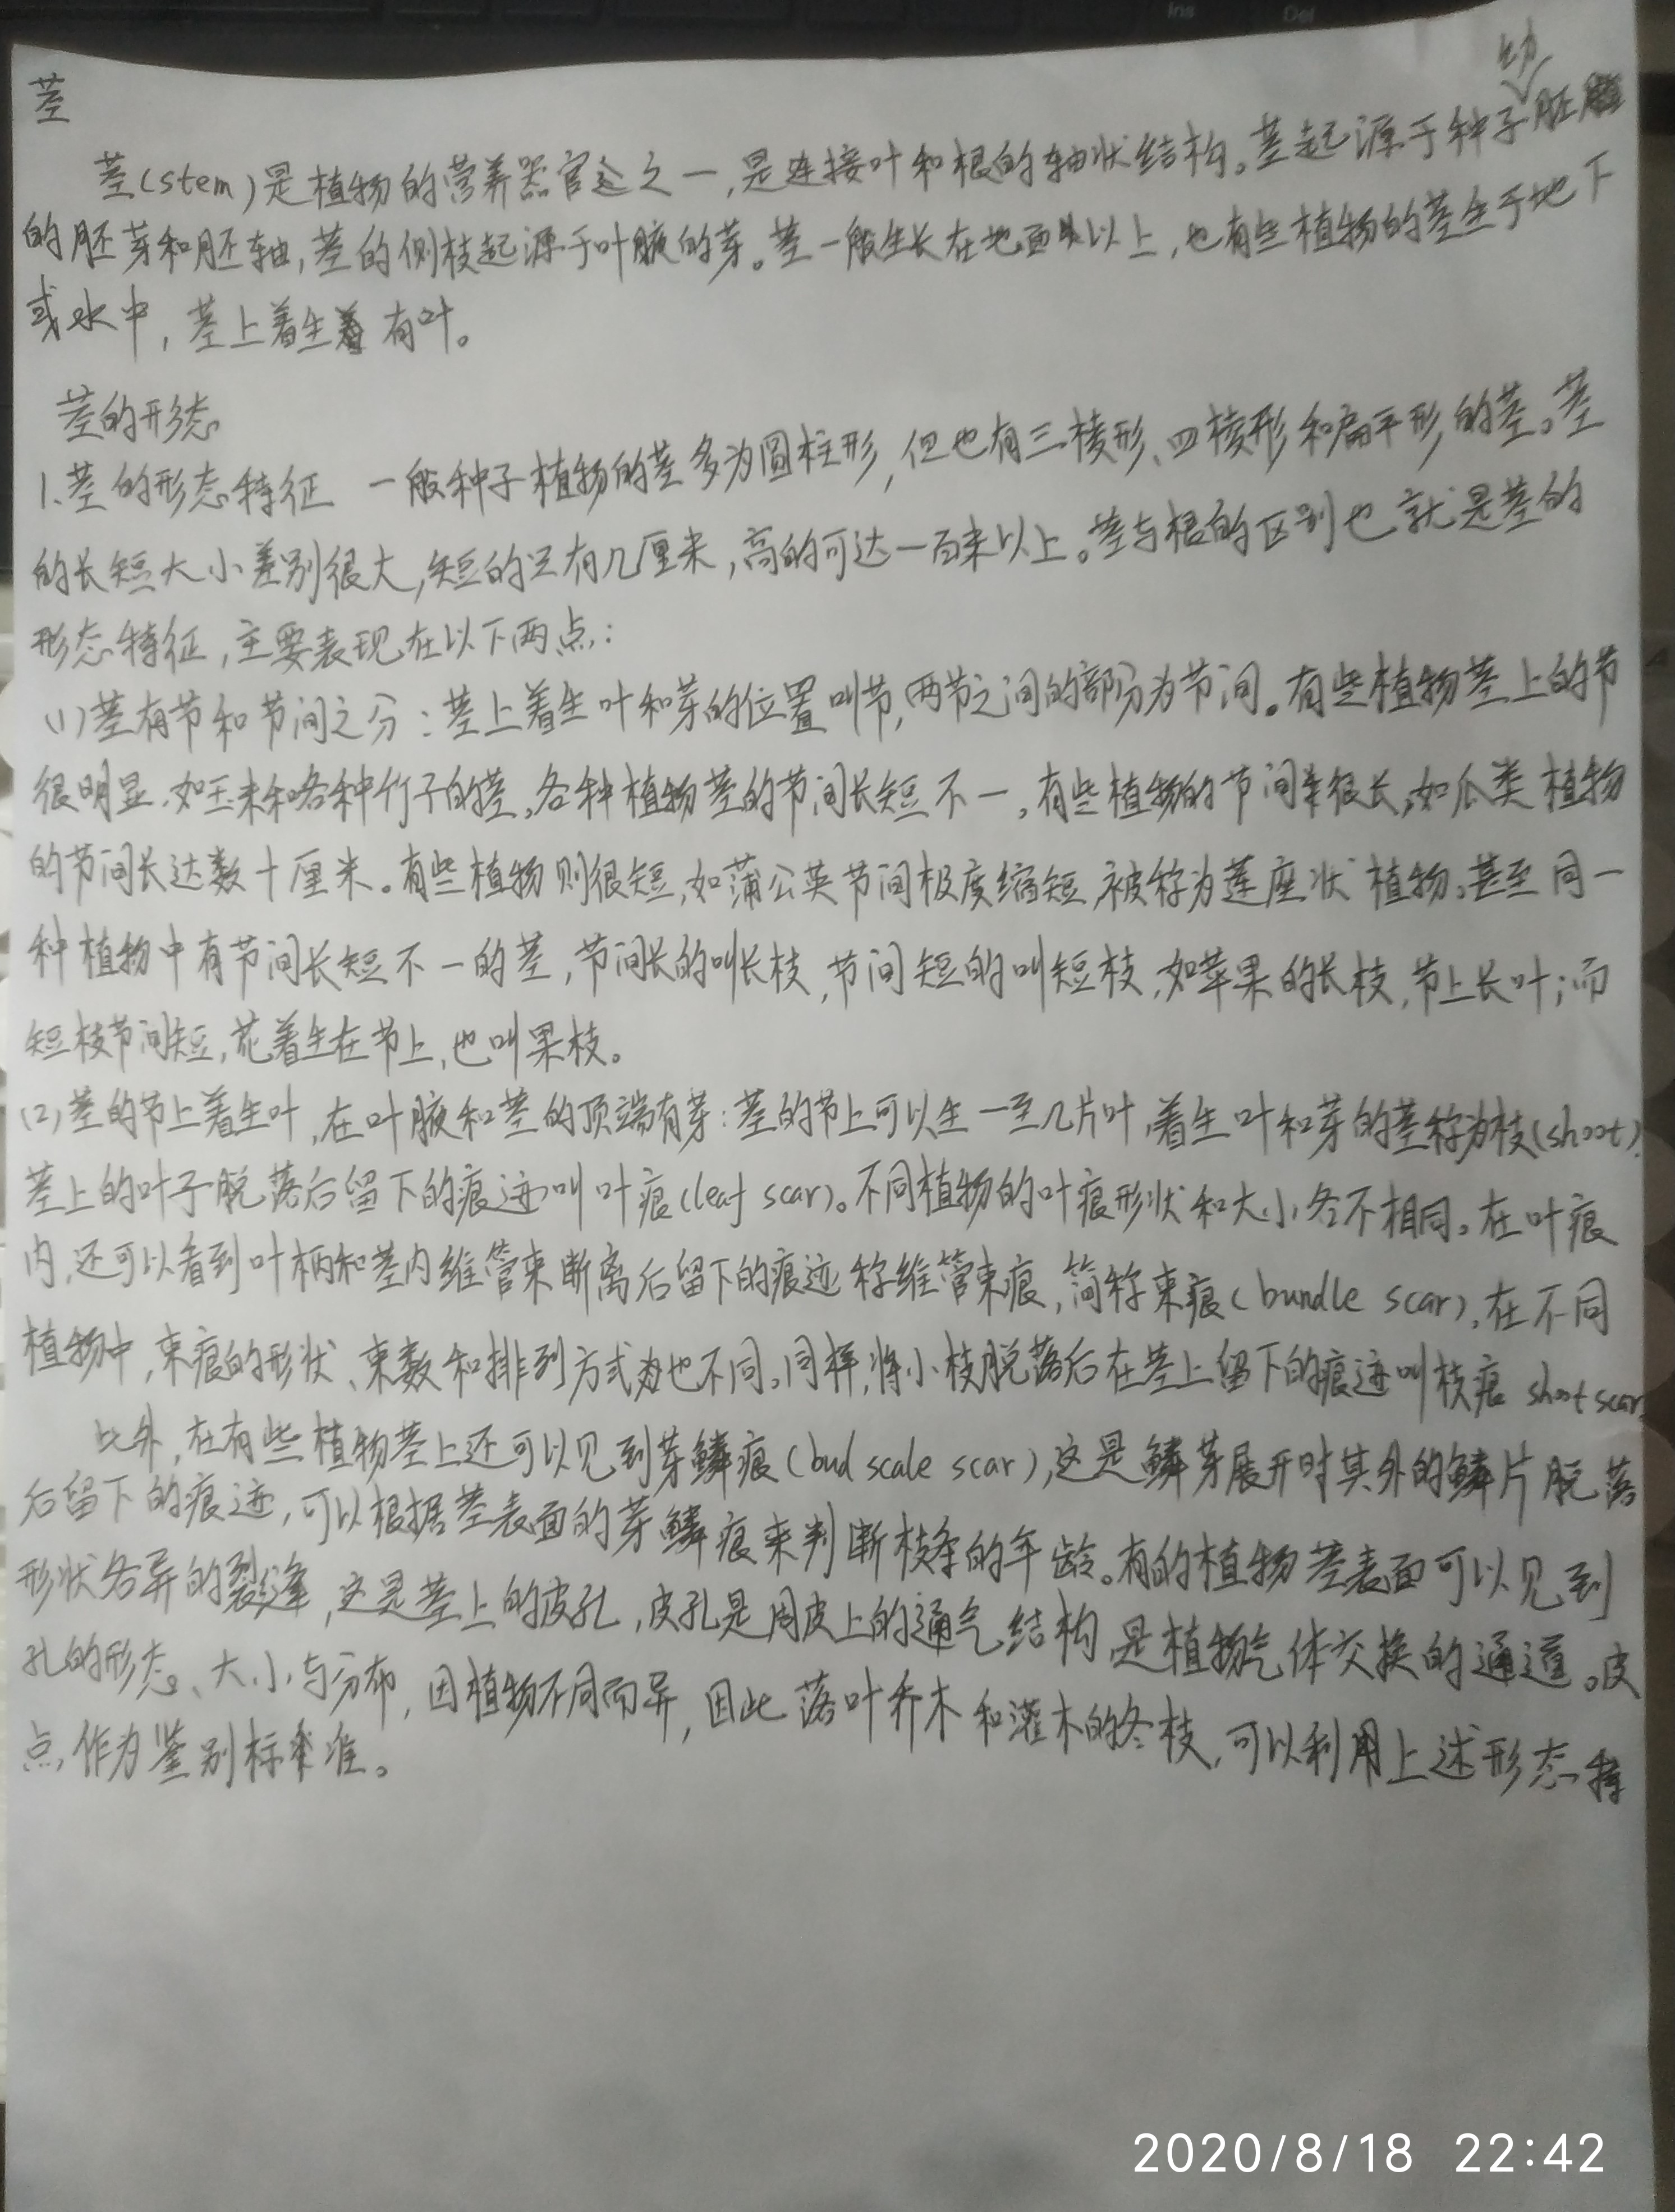 Ins Del
茎
茎(stem)是植物的营养器官之一,是连接叶和根的轴状结构。茎起源于种子幼胚
的胚芽和胚轴,茎的侧枝起源于叶腋的芽。茎一般生长在地面以上,也有些植物的茎生于地下
或水中,茎上着生有叶。
茎的形态
1.茎的形态特征 一般种子植物的茎多为圆柱形,但也有三棱形、四棱形和扁平形的茎。茎
的长短大小差别很大,短的只有几厘米,高的可达一百米以上。茎与根的区别也就是茎的
形态特征,主要表现在以下两点:
(1)茎有节和节间之分:茎上着生叶和芽的位置叫节,两节之间的部分为节间。有些植物茎上的节
很明显,如玉米和各种竹子的茎。各种植物茎的节间长短不一。有些植物的节间很长,如瓜类植物
的节间长达数十厘米。有些植物则很短,如蒲公英节间极度缩短,被称为莲座状植物。甚至同一
种植物中有节间长短不一的茎,节间长的叫长枝,节间短的叫短枝,如苹果的长枝,节上长叶;而
短枝节间短,花着生在节上,也叫果枝。
(2)茎的节上着生叶,在叶腋和茎的顶端有芽:茎的节上可以生一至几片叶,着生叶和芽的茎称为枝(shoot).
茎上的叶子脱落后留下的痕迹叫叶痕(leaf scar)。不同植物的叶痕形状和大小各不相同。在叶痕
内,还可以看到叶柄和茎内维管束断离后留下的痕迹称维管束痕,简称束痕(bundle scar),在不同
植物中,束痕的形状、束数和排列方式也不同。同样,将小枝脱落后在茎上留下的痕迹叫枝痕 shoot scar.
此外,在有些植物茎上还可以见到芽鳞痕(bud scale scar),这是鳞芽展开时其外的鳞片脱落
后留下的痕迹,可以根据茎表面的芽鳞痕来判断枝条的年龄。有的植物茎表面可以见到
形状各异的裂缝,这是茎上的皮孔,皮孔是周皮上的通气结构,是植物气体交换的通道。皮
孔的形态、大小与分布,因植物不同而异,因此落叶乔木和灌木的冬枝,可以利用上述形态特
点作为鉴别标准。
2020/8/18 22:42